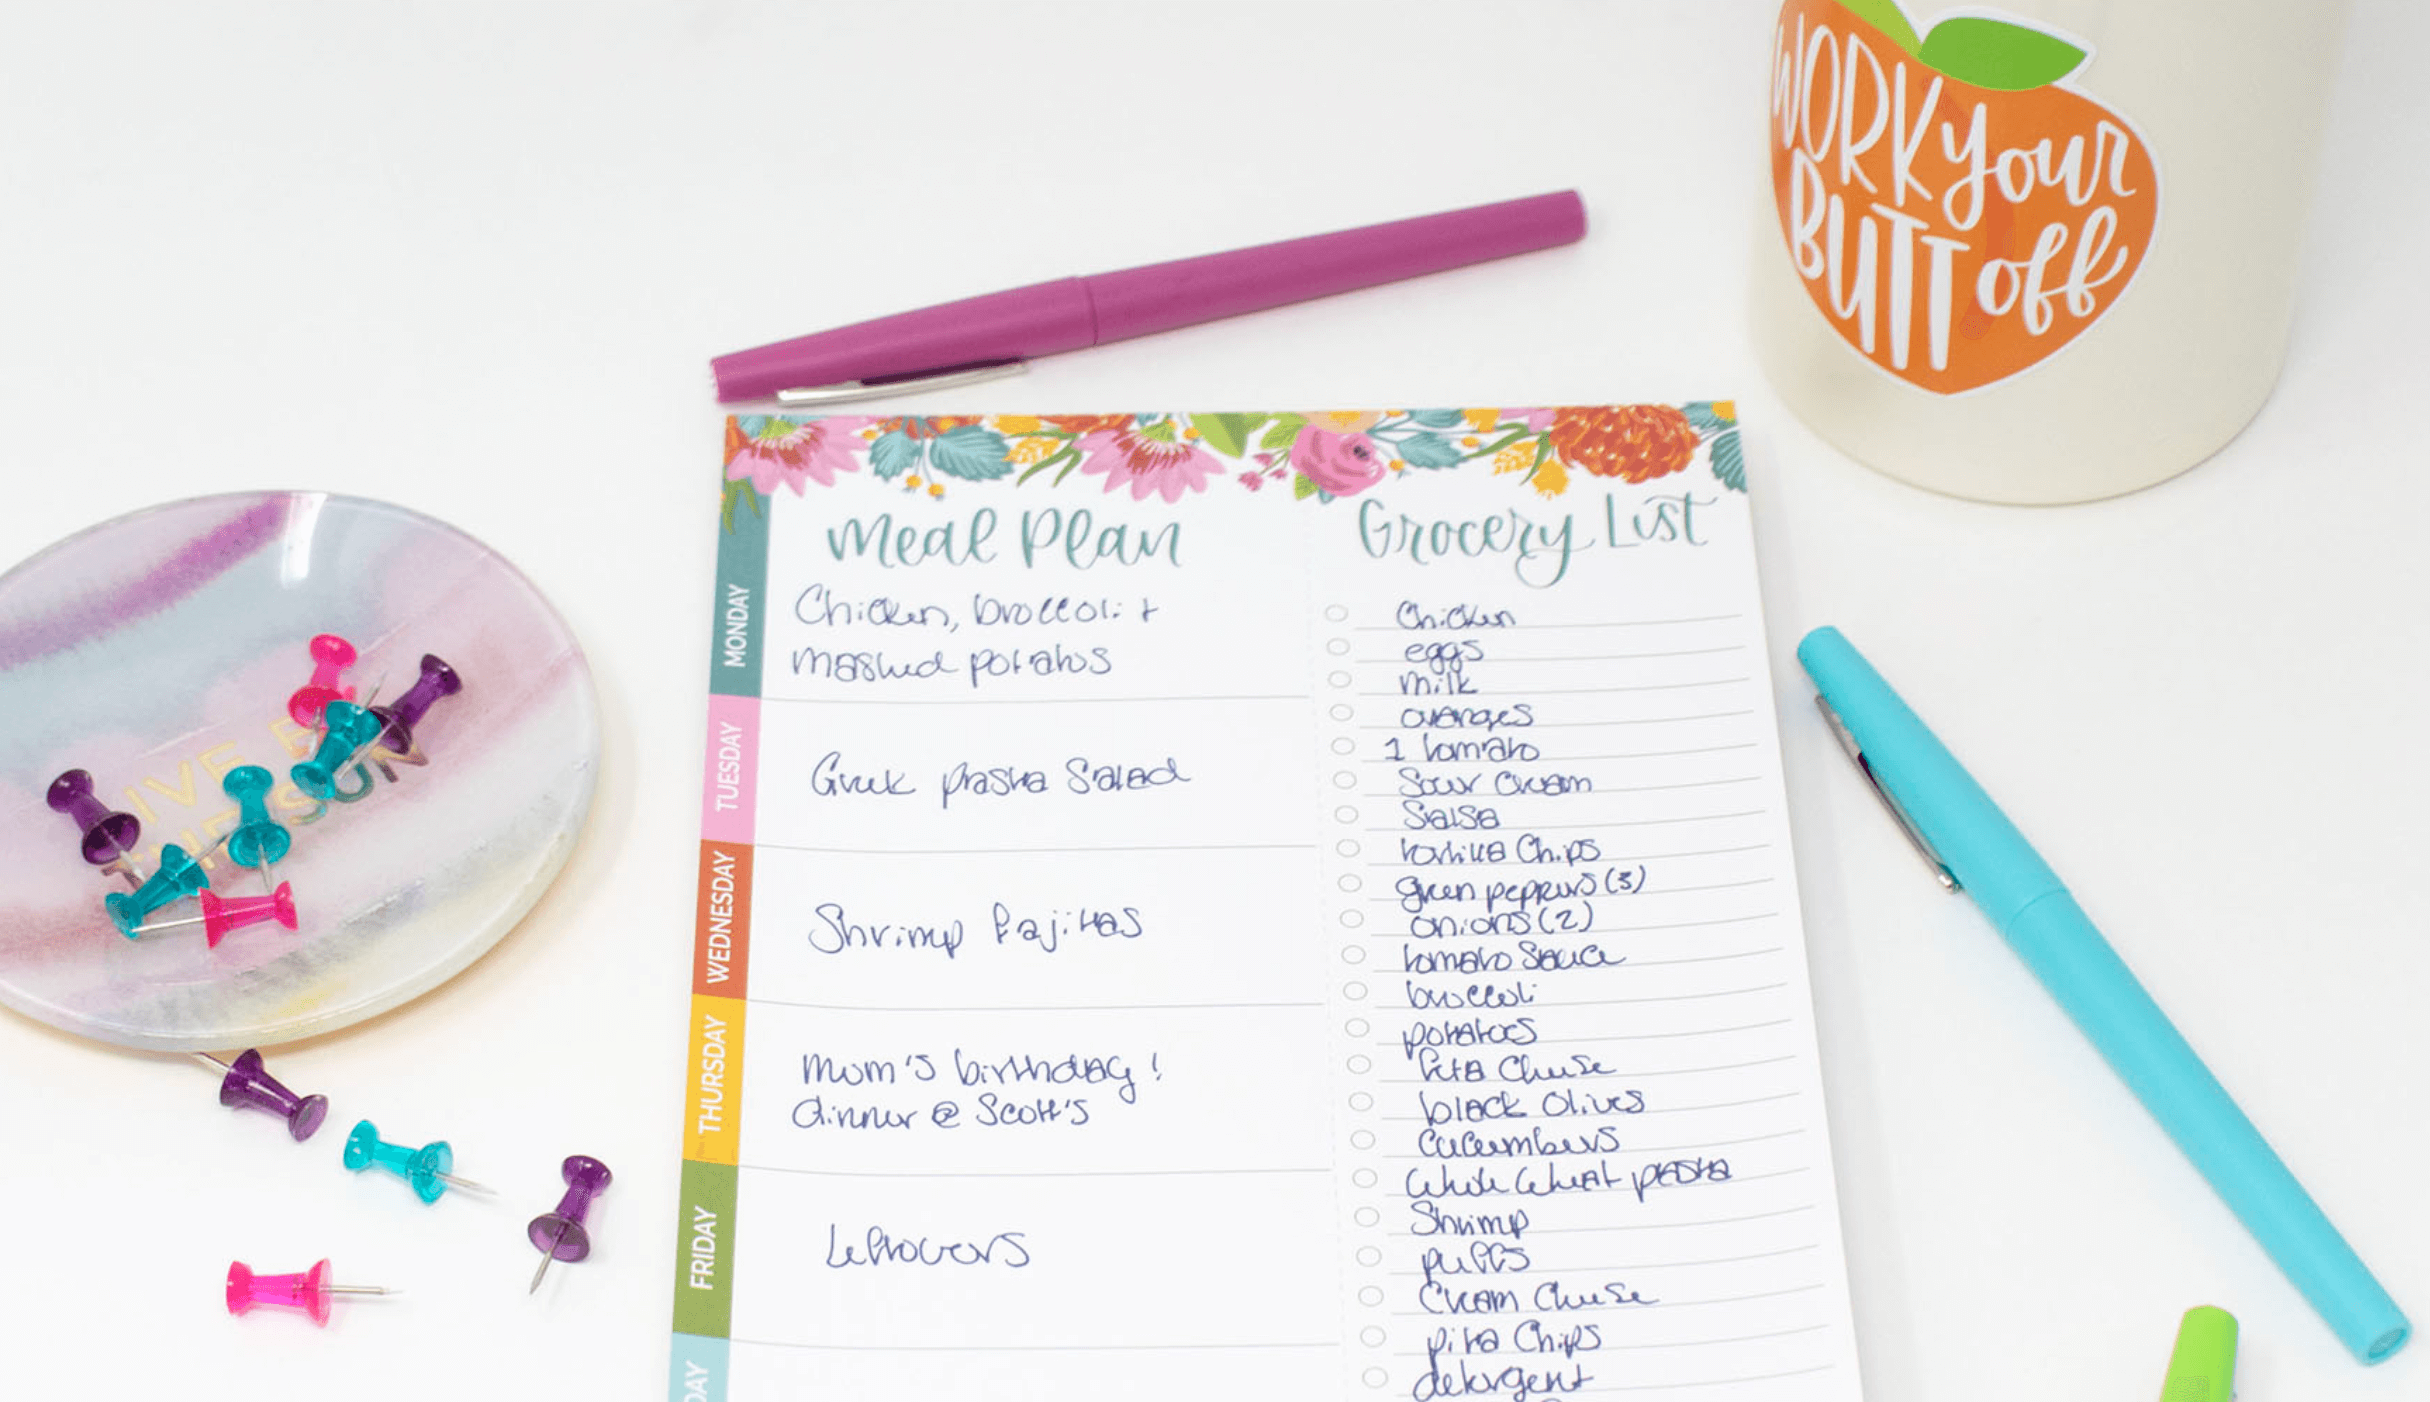 WORK your
BUTT off
Meal Plan
MONDAY
Chicken, broccoli +
mashed potatos
TUESDAY
Greek pasta Salad
WEDNESDAY
Shrimp fajitas
THURSDAY
Mom's birthday!
dinner @ Scott's
FRIDAY
Leftovers
DAY
Grocery List
Chicken
eggs
milk
oranges
1 tomato
Sour Cream
Salsa
tortilla Chips
green peppers (3)
onions (2)
tomato Sauce
broccoli
potatoes
feta Cheese
black Olives
Cucumbers
Whole Wheat pasta
Shrimp
puffs
Cream Cheese
pita Chips
detergent
LIVE
THE SUN